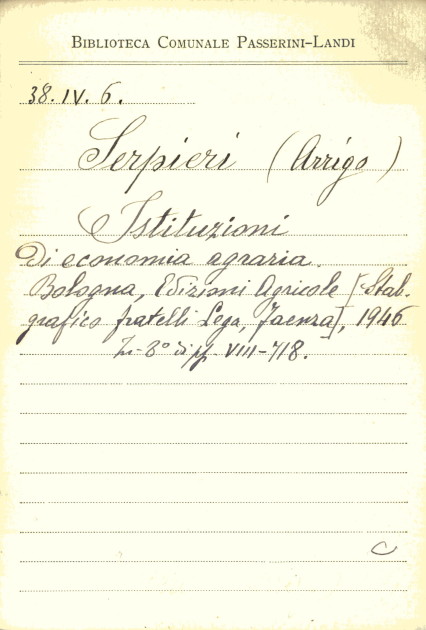 BIBLIOTECA COMUNALE PASSERINI-LANDI
38. IV. 6.
Serpieri (Arrigo)
Istituzioni
di economia agraria.
Bologna, Edizioni Agricole [Stab.
grafico fratelli Lega, Faenza], 1946
In-8° di pp. VIII-718.
C